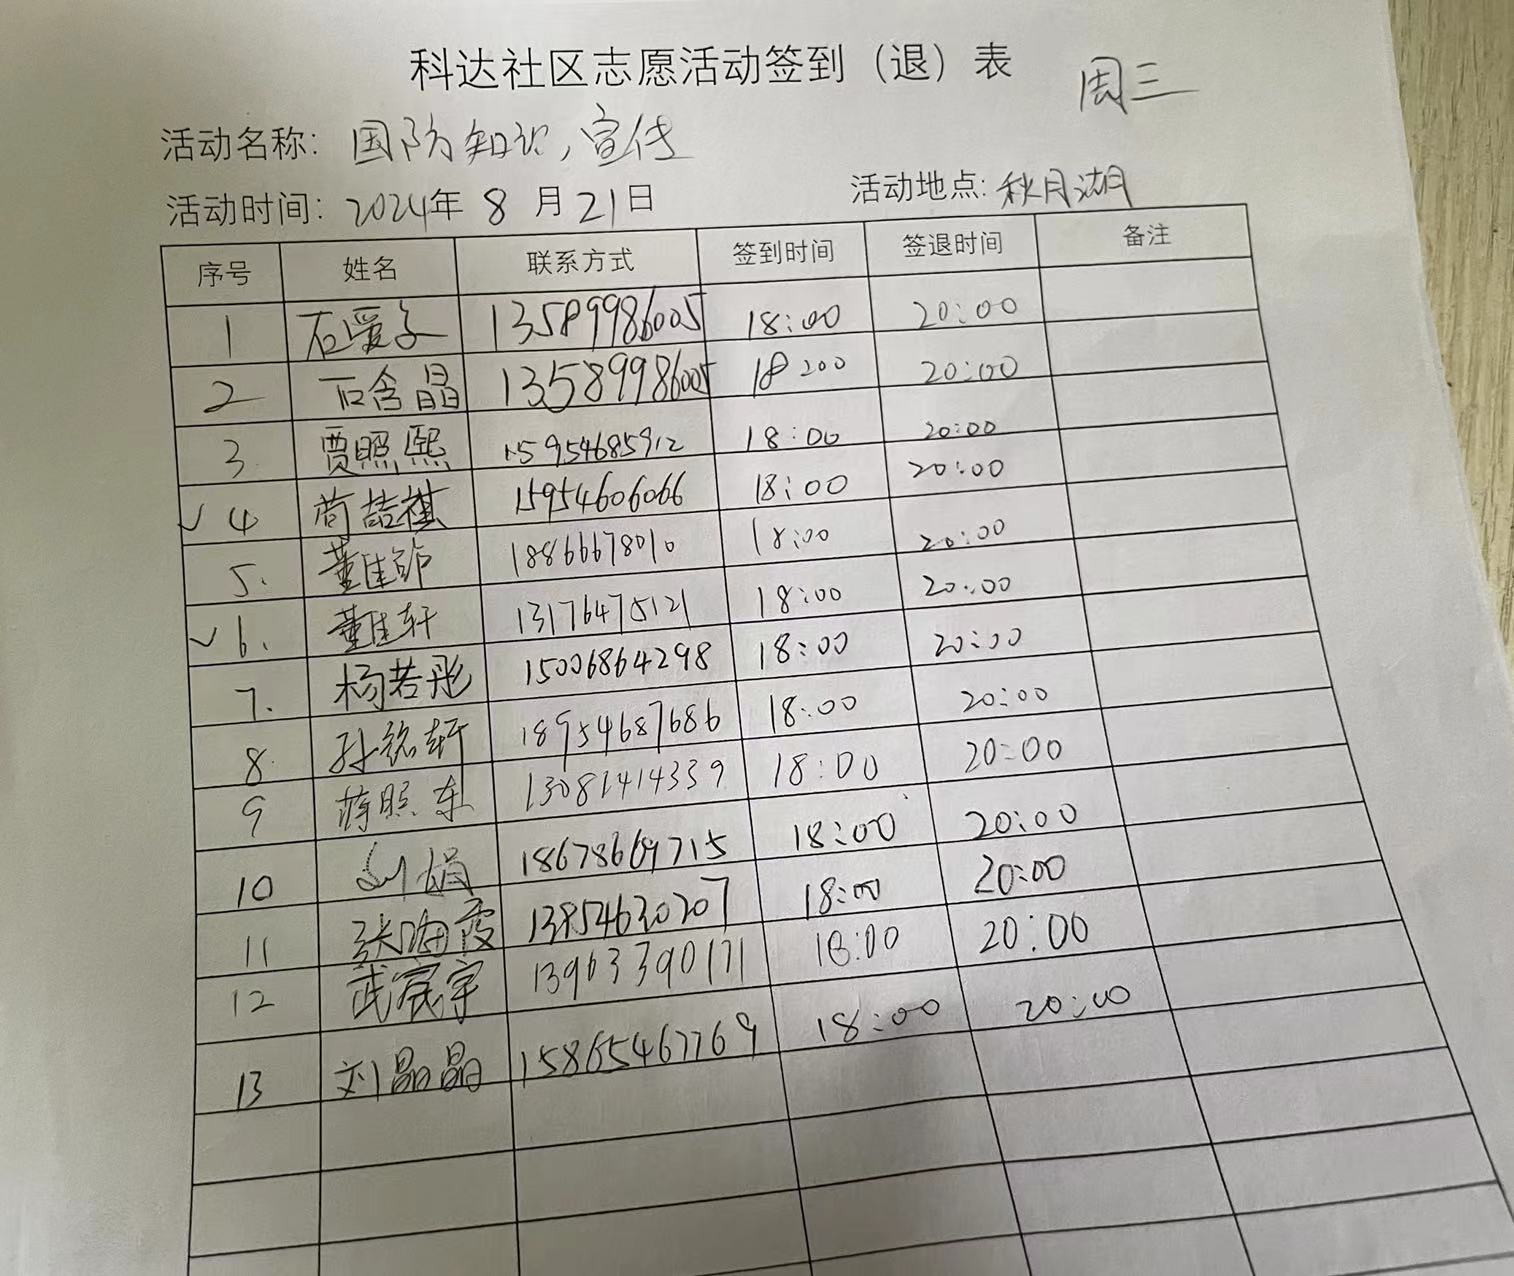 科达社区志愿活动签到（退）表
周三
活动名称: 国防知识,宣传
活动时间: 2024年 8 月 21日 活动地点: 秋月湖
序号 姓名 联系方式 签到时间 签退时间 备注
1 石爱子 13589986005 18:00 20:00
2 石含晶 13589986005 18:00 20:00
3. 贾照熙 15954685912 18:00 20:00
✓ 4 荀喆祺 15954606066 18:00 20:00
5. 董佳 18866678010 18:00 20:00
✓ 6. 董佳轩 13176475121 18:00 20:00
7. 杨若彤 15006864298 18:00 20:00
8. 孙铭轩 18954687686 18:00 20:00
9 蒋照东 13081414339 18:00 20:00
10 刘娟 18678669715 18:00 20:00
11 张海霞 13854630207 18:00 20:00
12 武宸宇 13963390171 18:00 20:00
13 刘晶晶 15865467769 18:00 20:00